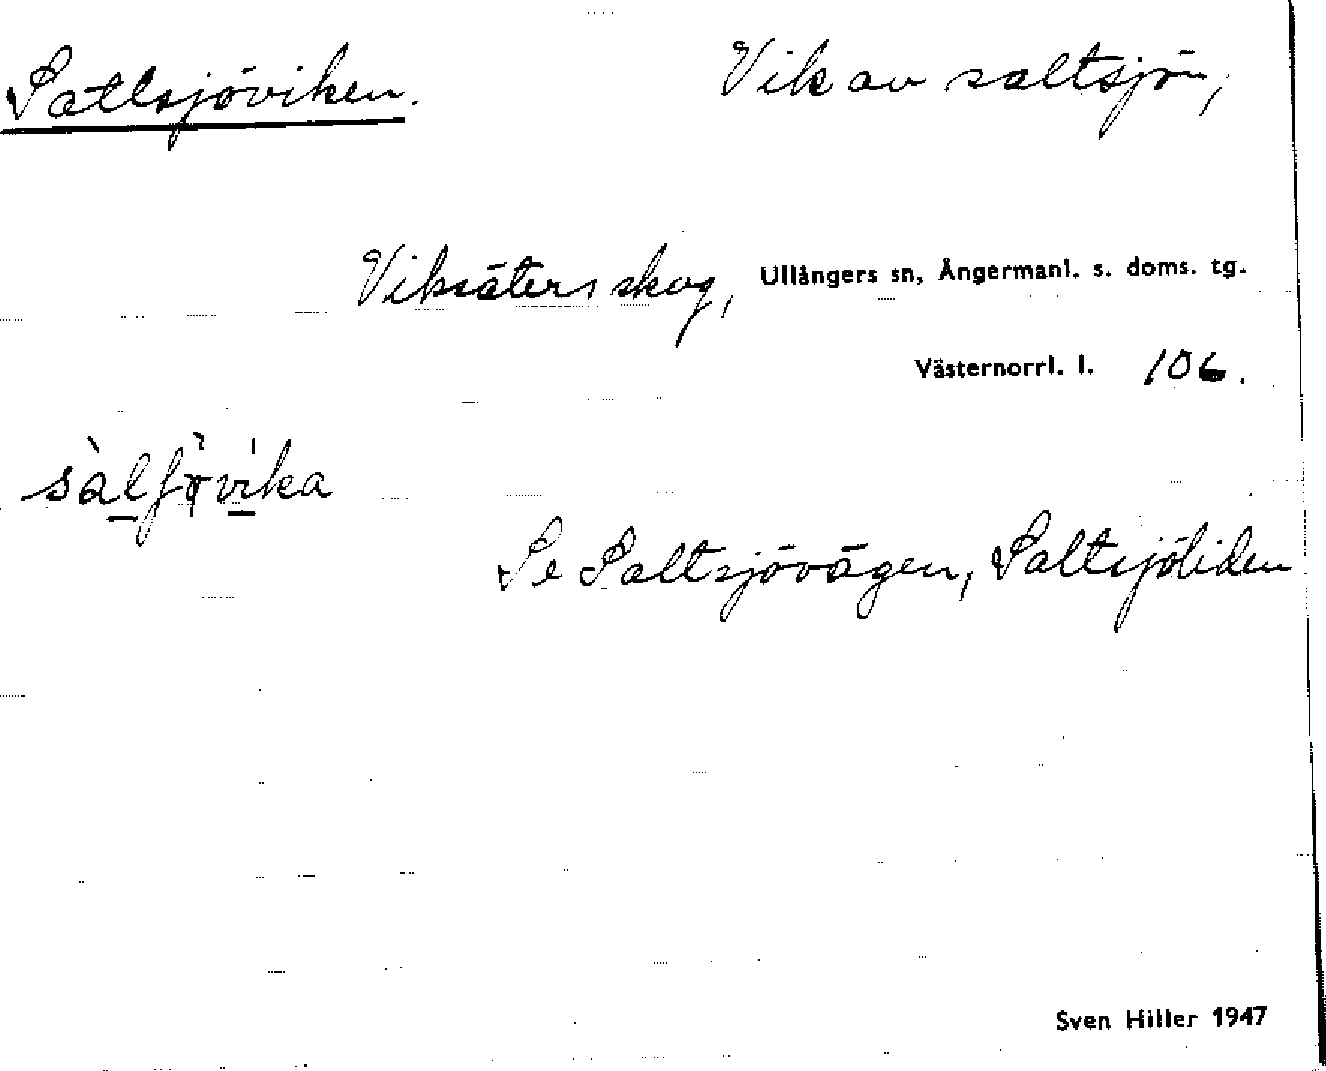 Saltsjöviken. Vik av saltsjön,
Viksäters skog, Ullångers sn, Ångermanl. s. doms. tg.
Västernorrl. l. 106.
sàlʃö̀víka
Se Saltsjövägen, Saltsjöliden
Sven Hiller 1947